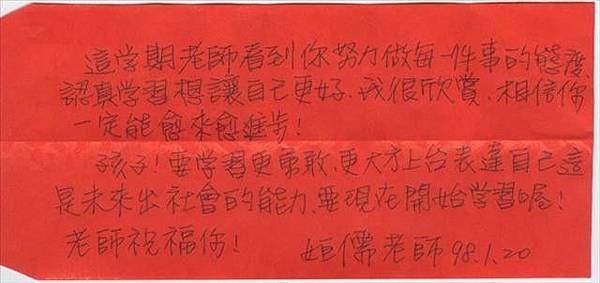 這学期老師看到你努力做每一件事的態度,
認真学習想讓自己更好,我很欣賞,相信你
一定能愈來愈進步!
孩子!要学習更勇敢,更大方上台表達自己這
是未來出社會的能力,要現在開始学習喔!
老師祝福你! 姮儒老師 98.1.20